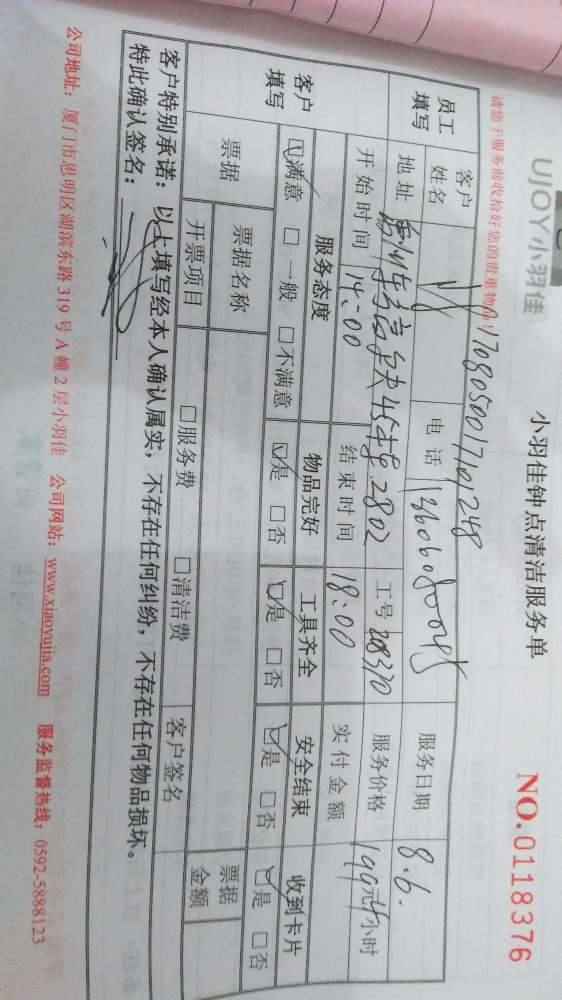 UJOY小羽佳
小羽佳钟点清洁服务单
NO.0118376
请您于服务前收拾好您的贵重物品!
1708050017101248
员工填写
客户姓名
电话
服务日期 8.6.
地址
2802
工号 208370
服务价格 199元4小时
开始时间 14:00 结束时间 18:00 实付金额
客户填写
服务态度 物品完好 工具齐全 安全结束 收到卡片
☑满意 □一般 □不满意 ☑是 □否 ☑是 □否 ☑是 □否 ☑是 □否
票据 票据名称 票据金额
开票项目 □服务费 □清洁费 客户签名
客户特别承诺:以上填写经本人确认属实,不存在任何纠纷,不存在任何物品损坏。
特此确认签名:
公司地址:厦门市思明区湖滨东路319号A幢2层小羽佳 公司网站:www.xiaoyujia.com 服务监督热线:0592-5888123